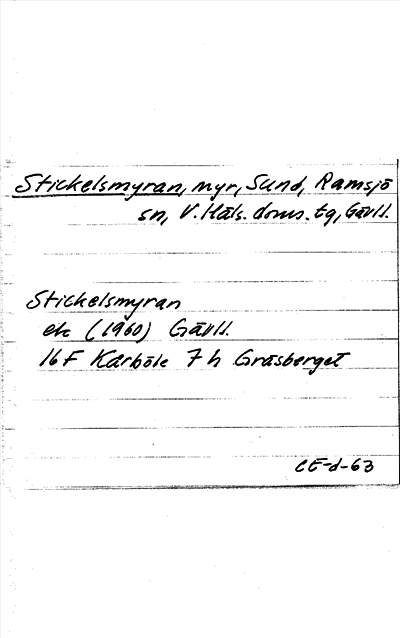 Stickelsmyran, myr, Sund, Ramsjö
sn, V. Häls. doms. tg, Gävll.
Stickelsmyran
ek (1960) Gävll.
16 F Kårböle 7 h Gräsberget
CE-d-63